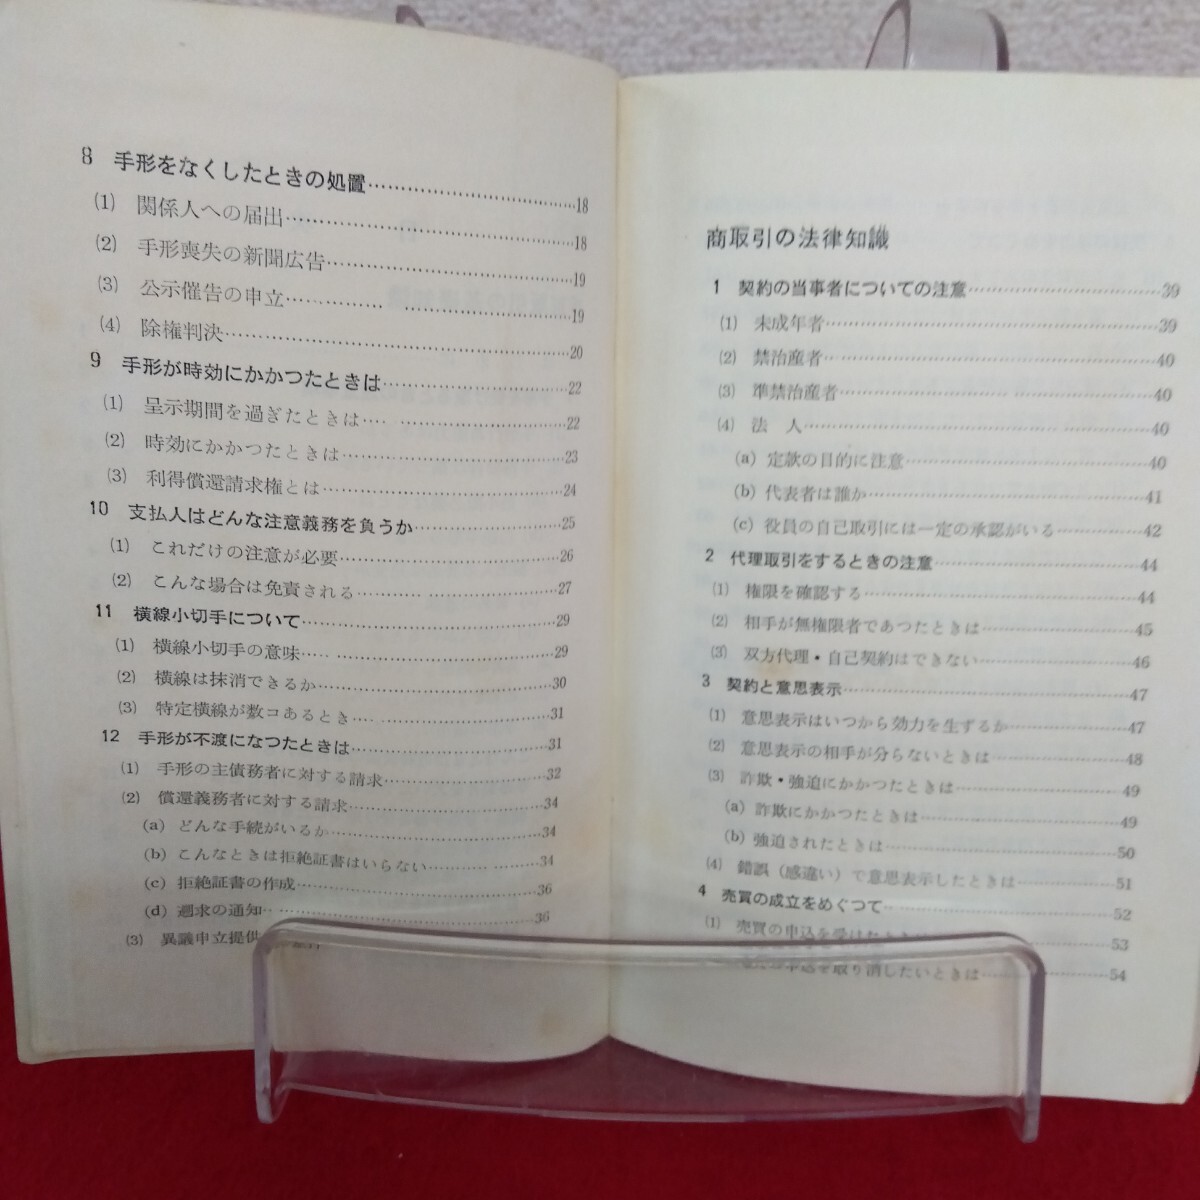 8 手形をなくしたときの処置……18
(1) 関係人への届出……18
(2) 手形喪失の新聞広告……19
(3) 公示催告の申立……19
(4) 除権判決……20
9 手形が時効にかかつたときは……22
(1) 呈示期間を過ぎたときは……22
(2) 時効にかかつたときは……23
(3) 利得償還請求権とは……24
10 支払人はどんな注意義務を負うか……25
(1) これだけの注意が必要……26
(2) こんな場合は免責される……27
11 横線小切手について……29
(1) 横線小切手の意味……29
(2) 横線は抹消できるか……30
(3) 特定横線が数コあるとき……31
12 手形が不渡になつたときは……31
(1) 手形の主債務者に対する請求……32
(2) 償還義務者に対する請求……34
(a) どんな手続がいるか……34
(b) こんなときは拒絶証書はいらない……34
(c) 拒絶証書の作成……36
(d) 遡求の通知……36
(3) 異議申立提供
商取引の法律知識
1 契約の当事者についての注意……39
(1) 未成年者……39
(2) 禁治産者……40
(3) 準禁治産者……40
(4) 法 人……40
(a) 定款の目的に注意……40
(b) 代表者は誰か……41
(c) 役員の自己取引には一定の承認がいる……42
2 代理取引をするときの注意……44
(1) 権限を確認する……44
(2) 相手が無権限者であつたときは……45
(3) 双方代理・自己契約はできない……46
3 契約と意思表示……47
(1) 意思表示はいつから効力を生ずるか……47
(2) 意思表示の相手が分らないときは……48
(3) 詐欺・強迫にかかつたときは……49
(a) 詐欺にかかつたときは……49
(b) 強迫されたときは……50
(4) 錯誤（感違い）で意思表示したときは……51
4 売買の成立をめぐつて……52
(1) 売買の申込を受けたときは……53
申込を取り消したいときは……54